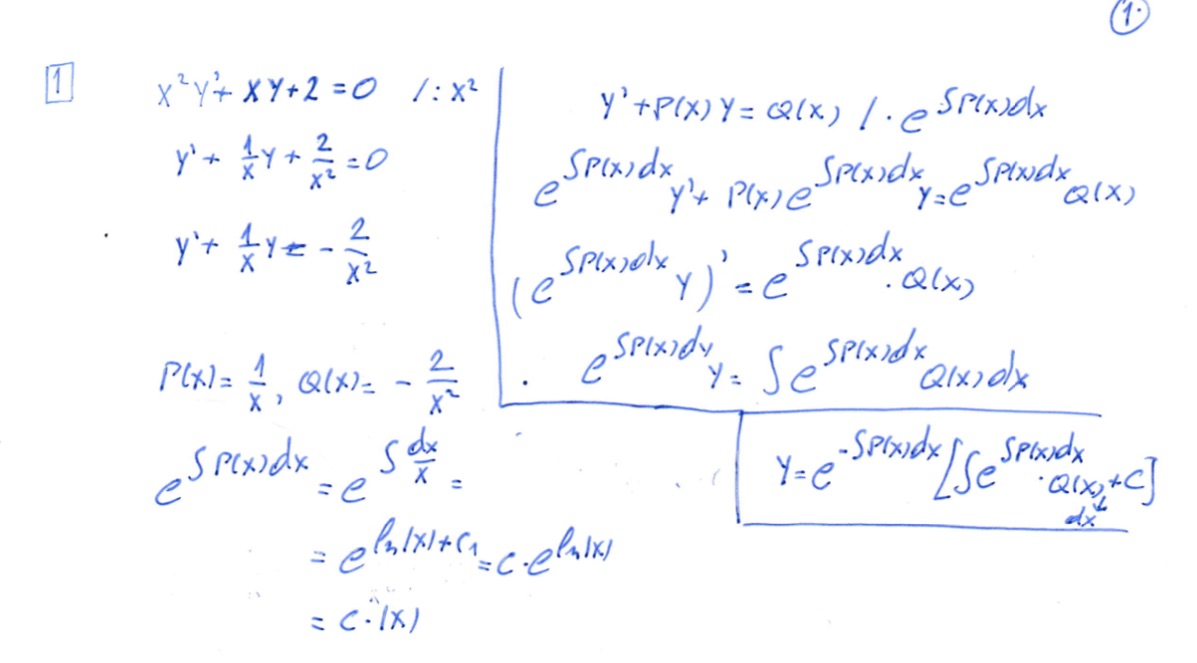 1.
1
x²y'+xy+2=0 /:x²
y'+ 1/x y + 2/x² =0
y'+ 1/x y = - 2/x²
P(x)= 1/x, Q(x)= - 2/x²
e^∫P(x)dx = e^∫dx/x =
= e^ln|x|+C₁ = C·e^ln|x|
= C·|x|
y'+P(x)y=Q(x) /·e^∫P(x)dx
e^∫P(x)dx y'+ P(x)e^∫P(x)dx y=e^∫P(x)dx Q(x)
(e^∫P(x)dx y)'=e^∫P(x)dx ·Q(x)
e^∫P(x)dy y=∫e^∫P(x)dx Q(x)dx
y=e^-∫P(x)dx [∫e^∫P(x)dx ·Q(x)+C]
dx